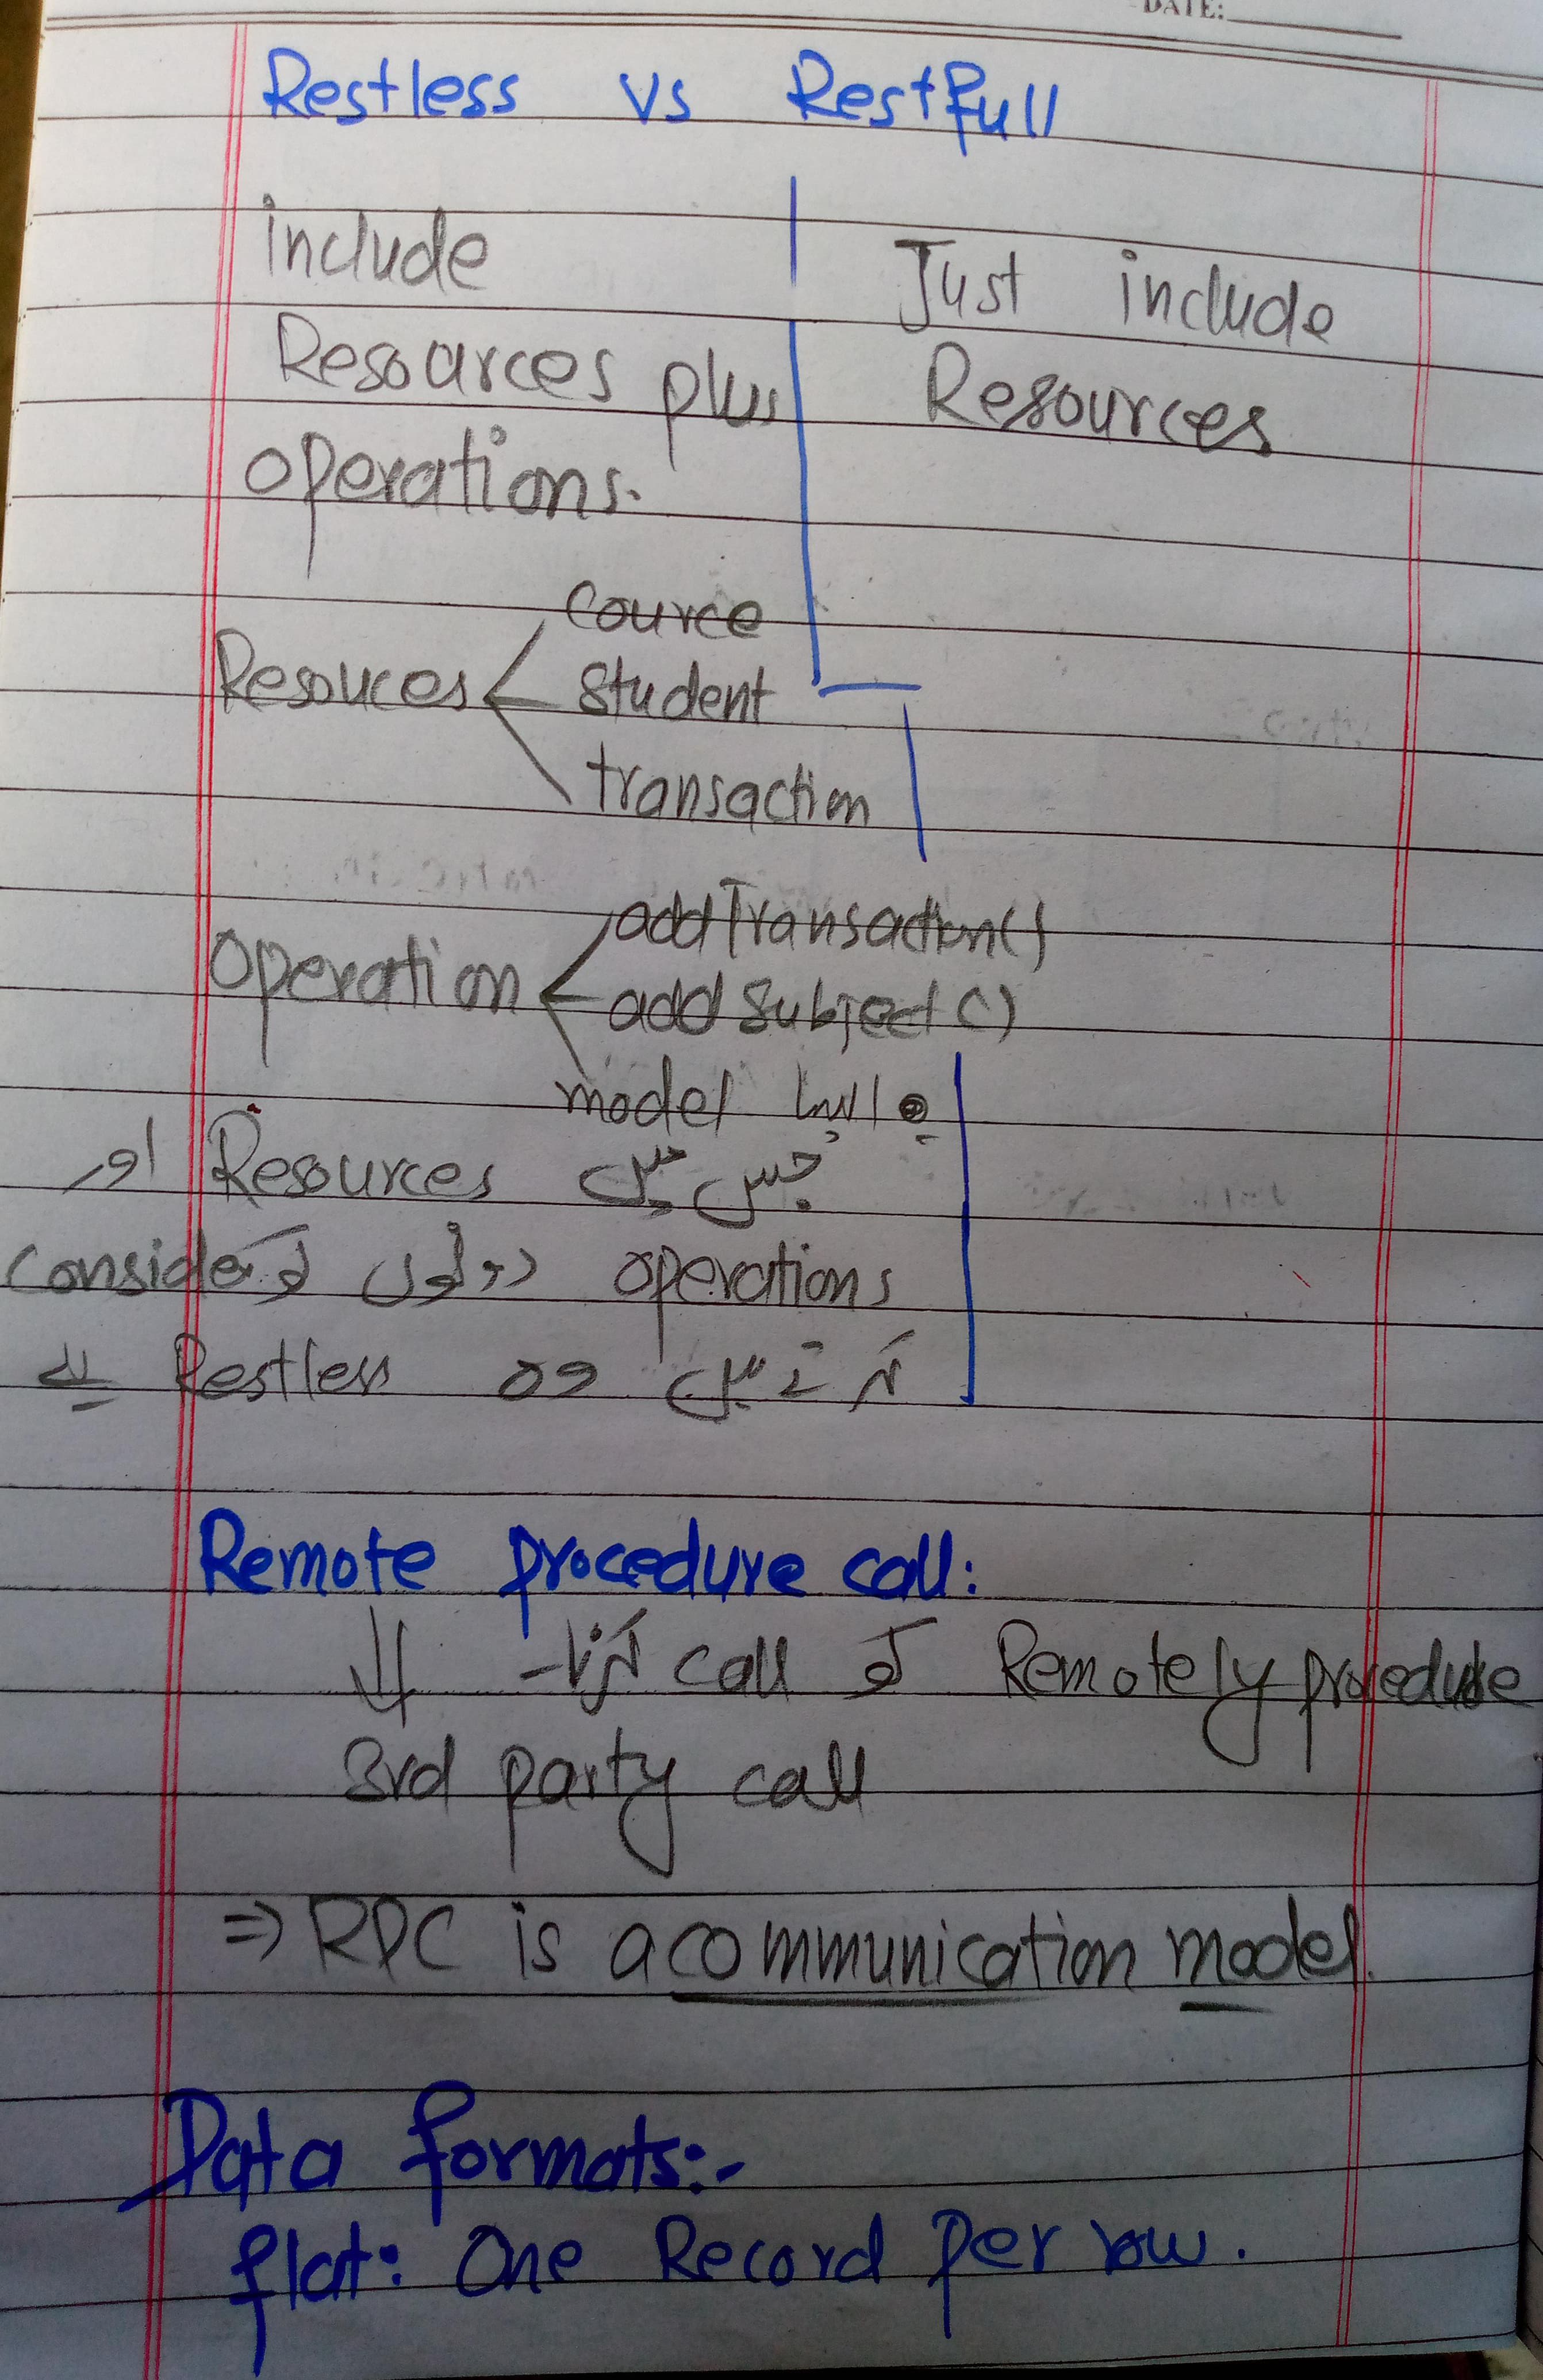 DATE:
Restless vs Restfull
include
Just include
Resources plus
Resources
operations.
Resouces
cource
student
transaction
Operation
addTransaction()
add Subject ()
ایسا model
جس میں Resources اور
operations دونوں کو consider
کرتے ہیں وہ Restless ہے
Remote procedure call:
Remotely procedure کو call کرنا-
⇓
3rd party call
⇒ RPC is a communication model.
Data formats:-
flat: One Record per row.